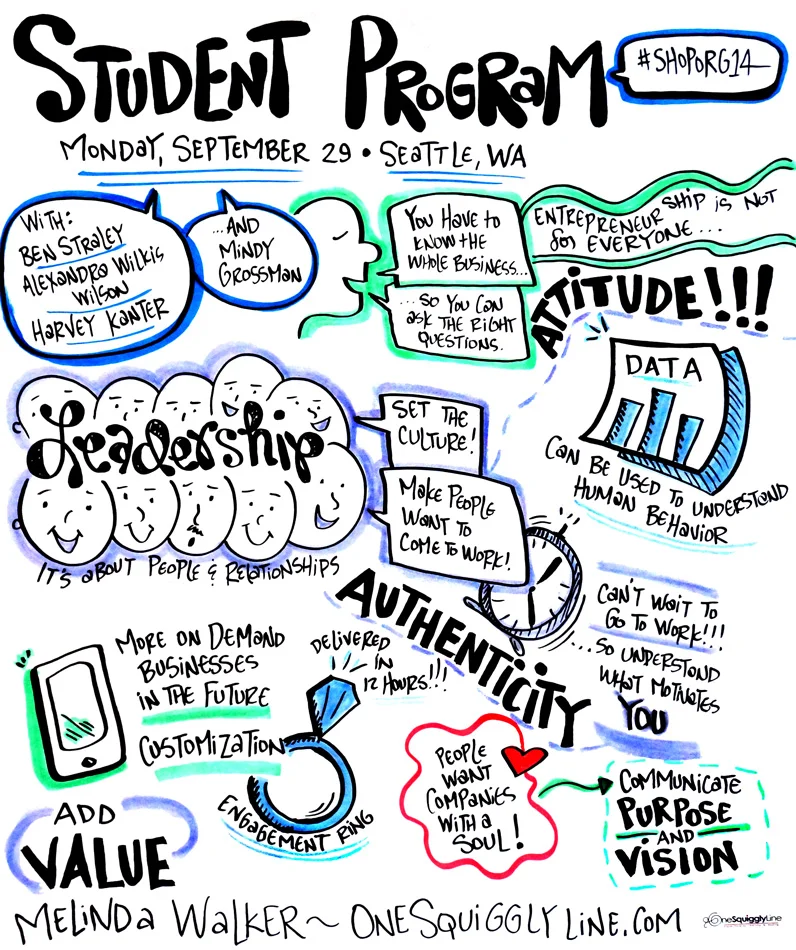 STUDENT PROGRAM
#SHOPORG14
MONDAY, SEPTEMBER 29 • SEATTLE, WA
WITH:
BEN STRALEY
ALEXANDRA WILKIS
WILSON
HARVEY KANTER
...AND
MINDY
GROSSMAN
YOU HAVE TO
KNOW THE
WHOLE BUSINESS...
...SO YOU CAN
ASK THE RIGHT
QUESTIONS.
ENTREPRENEURSHIP IS NOT
for EVERYONE...
ATTITUDE!!!
Leadership
IT'S ABOUT PEOPLE & RELATIONSHIPS
SET THE
CULTURE!
MAKE PEOPLE
WANT TO
COME TO WORK!
DATA
CAN BE USED TO UNDERSTAND
HUMAN BEHAVIOR
AUTHENTICITY
CAN'T WAIT TO
GO TO WORK!!!
...SO UNDERSTAND
WHAT MOTIVATES
YOU
MORE ON DEMAND
BUSINESSES
IN THE FUTURE
CUSTOMIZATION
DELIVERED
IN
12 HOURS!!!
ENGAGEMENT RING
ADD
VALUE
PEOPLE
WANT
COMPANIES
WITH A
SOUL!
COMMUNICATE
PURPOSE
AND
VISION
MELINDA WALKER~ONESQUIGGLYLINE.COM
OneSquigglyLine